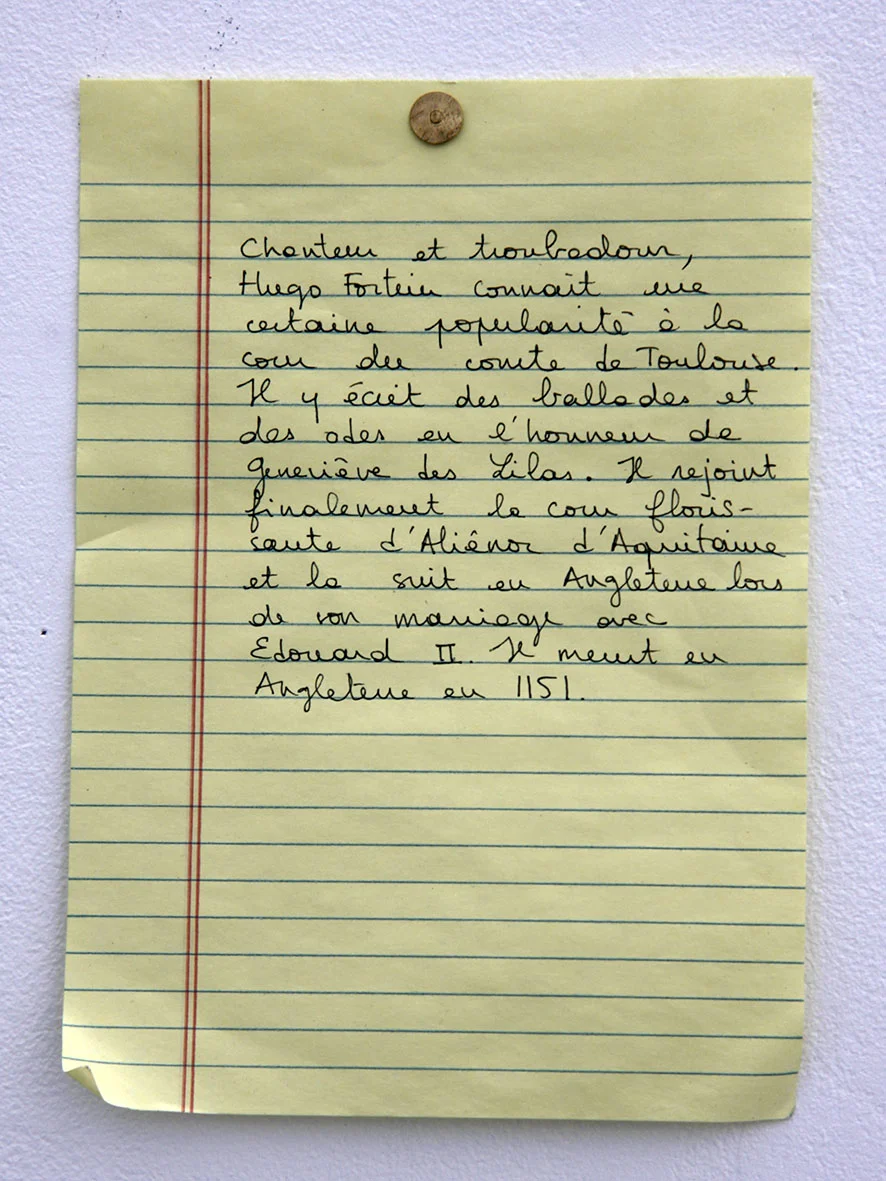 Chanteur et troubadour,
Hugo Fortein connait une
certaine popularité à la
cour du comte de Toulouse.
Il y écrit des ballades et
des odes en l'honneur de
Geneviève des Lilas. Il rejoint
finalement la cour floris-
sante d'Aliénor d'Aquitaine
et la suit en Angleterre lors
de son mariage avec
Edouard II. Il meurt en
Angleterre en 1151.